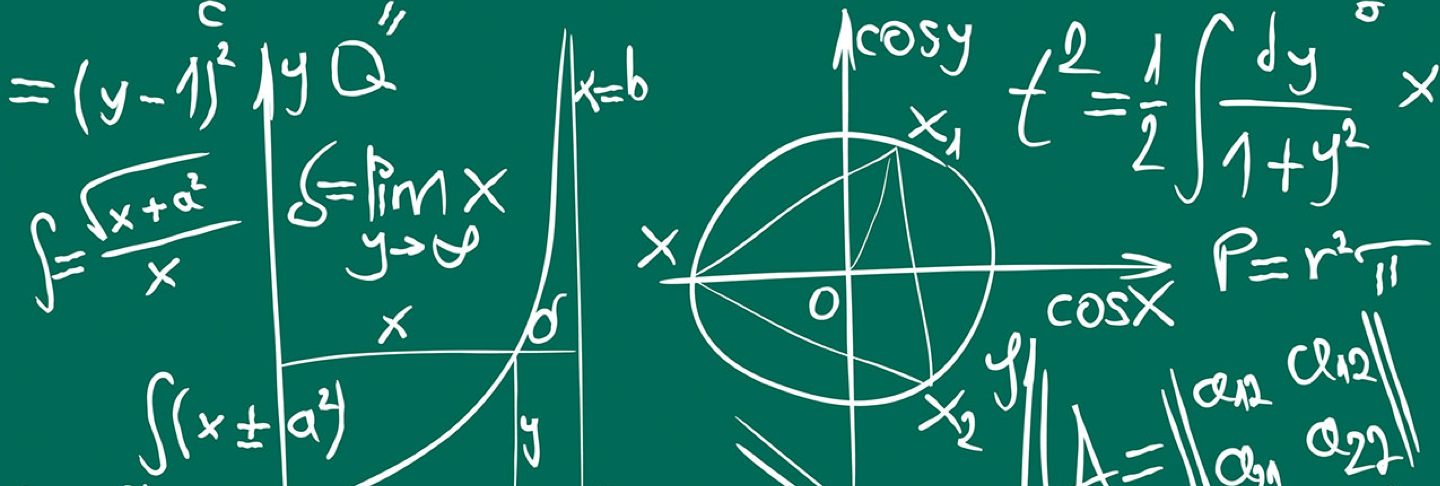 c
= (y-1)²
y Q"
x=b
∫= √x+a² / x
δ=lim x
y→∞
x
δ
∫(x ± a²)
y
cosy
x₁
x
0
cosx
x₂
t² = 1/2 ∫ dy / 1+y²
x
P= r²π
y
A= || a₁₂ a₁₂
a₂₁ a₂₂ ||